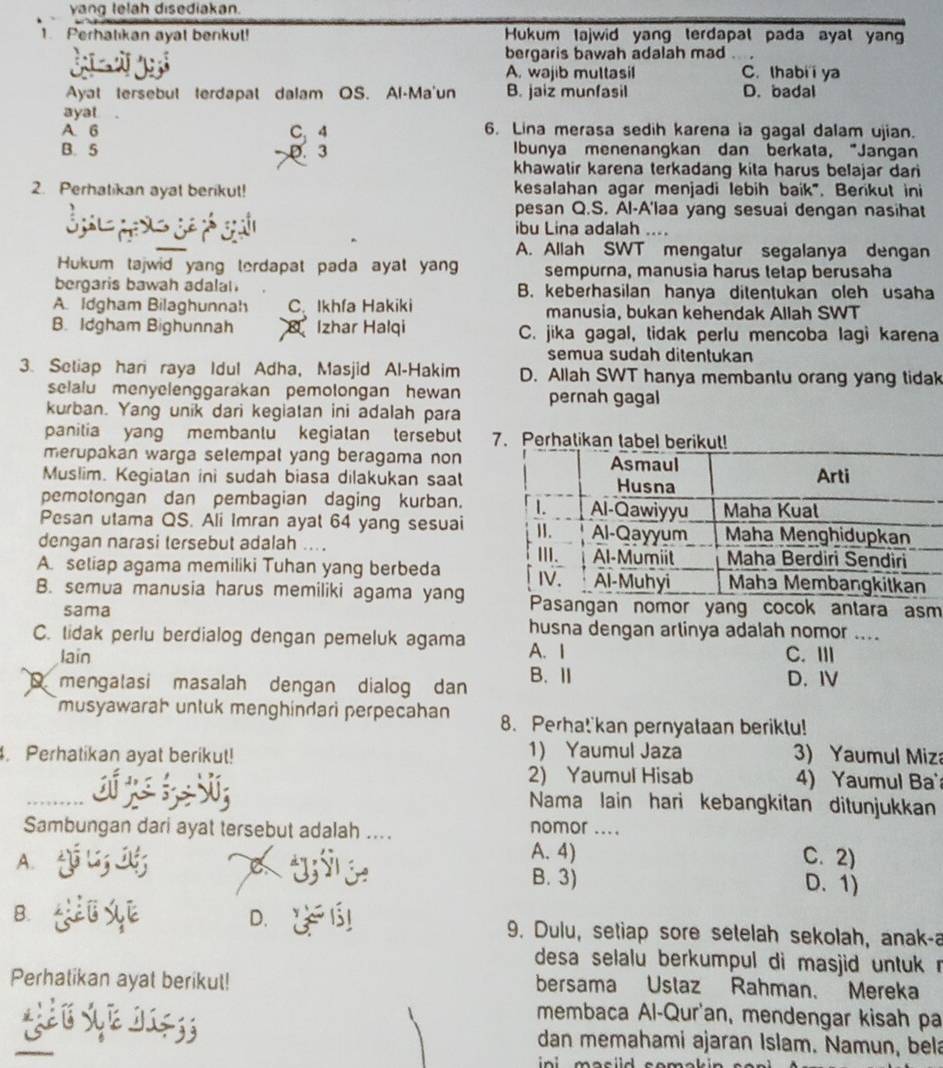 yang telah disediakan.
1. Perhatikan ayat berikut!
فَوَيْلٌ لِلْمُصَلِّيْنَ
Ayat tersebut terdapat dalam QS. Al-Ma'un
ayat .
A. 6 C. 4
B. 5 D. 3
2. Perhatikan ayat berikut!
الَّذِيْنَ هُمْ عَنْ صَلَاتِهِمْ سَاهُوْنَ
Hukum tajwid yang terdapat pada ayat yang
bergaris bawah adalah
A. Idgham Bilaghunnah C. Ikhfa Hakiki
B. Idgham Bighunnah Izhar Halqi
3. Setiap hari raya Idul Adha, Masjid Al-Hakim
selalu menyelenggarakan pemotongan hewan
kurban. Yang unik dari kegiatan ini adalah para
panitia yang membantu kegiatan tersebut
merupakan warga setempat yang beragama non
Muslim. Kegiatan ini sudah biasa dilakukan saat
pemotongan dan pembagian daging kurban.
Pesan utama QS. Ali Imran ayat 64 yang sesuai
dengan narasi tersebut adalah ....
A. setiap agama memiliki Tuhan yang berbeda
B. semua manusia harus memiliki agama yang
sama
C. tidak perlu berdialog dengan pemeluk agama
lain
D. mengatasi masalah dengan dialog dan
musyawarah untuk menghindari perpecahan
4. Perhatikan ayat berikut!
......... وَلَلْاٰخِرَةُ خَيْرٌ لَّكَ
Sambungan dari ayat tersebut adalah ....
A. رَبُّكَ وَمَا قَلٰى C. مِنَ الْاُوْلٰى
B. عَآئِلًا فَاَغْنٰى D. اِذَا سَجٰى
Perhatikan ayat berikut!
وَوَجَدَكَ عَآئِلًا فَاَغْنٰى
Hukum tajwid yang terdapat pada ayat yang
bergaris bawah adalah mad ....
A. wajib muttasil C. thabi'i ya
B. jaiz munfasil D. badal
6. Lina merasa sedih karena ia gagal dalam ujian.
Ibunya menenangkan dan berkata, "Jangan
khawatir karena terkadang kita harus belajar dari
kesalahan agar menjadi lebih baik". Berikut ini
pesan Q.S. Al-A'laa yang sesuai dengan nasihat
ibu Lina adalah ....
A. Allah SWT mengatur segalanya dengan
sempurna, manusia harus tetap berusaha
B. keberhasilan hanya ditentukan oleh usaha
manusia, bukan kehendak Allah SWT
C. jika gagal, tidak perlu mencoba lagi karena
semua sudah ditentukan
D. Allah SWT hanya membantu orang yang tidak
pernah gagal
7. Perhatikan tabel berikut!
Asmaul Husna Arti
I. Al-Qawiyyu Maha Kuat
II. Al-Qayyum Maha Menghidupkan
III. Al-Mumiit Maha Berdiri Sendiri
IV. Al-Muhyi Maha Membangkitkan
Pasangan nomor yang cocok antara asm
husna dengan artinya adalah nomor ....
A. I C. III
B. II D. IV
8. Perhatikan pernyataan beriktu!
1) Yaumul Jaza 3) Yaumul Miza
2) Yaumul Hisab 4) Yaumul Ba'
Nama lain hari kebangkitan ditunjukkan
nomor ....
A. 4) C. 2)
B. 3) D. 1)
9. Dulu, setiap sore setelah sekolah, anak-a
desa selalu berkumpul di masjid untuk
bersama Ustaz Rahman. Mereka
membaca Al-Qur'an, mendengar kisah pa
dan memahami ajaran Islam. Namun, bela
ini masjid semakin